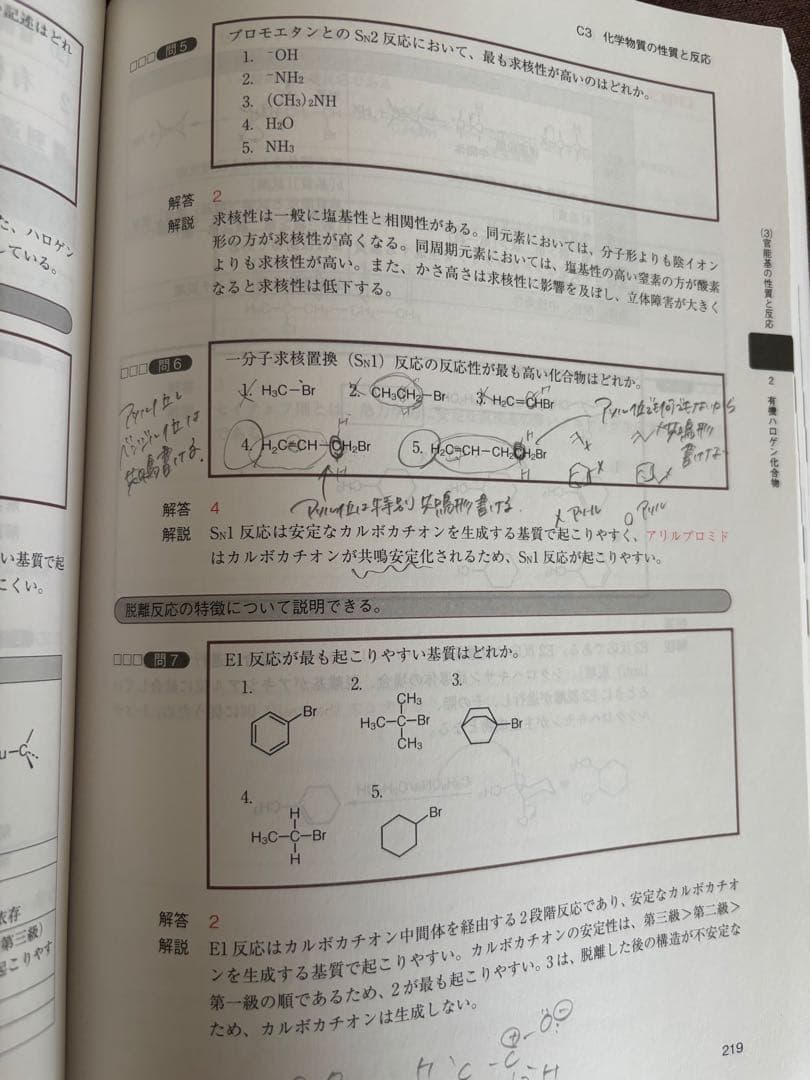 記述はどれ
C3 化学物質の性質と反応
□□□ 問5
ブロモエタンとのSN2反応において、最も求核性が高いのはどれか。
1. ⁻OH
2. ⁻NH2
3. (CH3)2NH
4. H2O
5. NH3
解答 2
解説 求核性は一般に塩基性と相関性がある。同元素においては、分子形よりも陰イオン
形の方が求核性が高くなる。同周期元素においては、塩基性の高い窒素の方が酸素
よりも求核性が高い。また、かさ高さは求核性に影響を及ぼし、立体障害が大きく
なると求核性は低下する。
た、ハロゲン
している。
(3)官能基の性質と反応
2 有機ハロゲン化合物
□□□ 問6
一分子求核置換（SN1）反応の反応性が最も高い化合物はどれか。
1. H3C－Br
2. CH3CH2－Br
3. H2C=CHBr
4. H2C=CH－CH2Br
5. H2C=CH－CH2CH2Br
アリル位と
ベンジル位は
共鳴書ける。
共鳴形
書けない
アリル位は特別 共鳴形書ける。
×アリル
○アリル
解答 4
解説 SN1反応は安定なカルボカチオンを生成する基質で起こりやすく、アリルブロミド
はカルボカチオンが共鳴安定化されるため、SN1反応が起こりやすい。
い基質で起
にくい。
脱離反応の特徴について説明できる。
□□□ 問7
E1反応が最も起こりやすい基質はどれか。
1.
Br
2.
CH3
H3C－C－Br
CH3
3.
Br
4.
H
H3C－C－Br
H
5.
Br
解答 2
解説 E1反応はカルボカチオン中間体を経由する2段階反応であり、安定なカルボカチオ
ンを生成する基質で起こりやすい。カルボカチオンの安定性は、第三級＞第二級＞
第一級の順であるため、2が最も起こりやすい。3は、脱離した後の構造が不安定な
ため、カルボカチオンは生成しない。
u－C
依存
第三級）
起こりやす
219